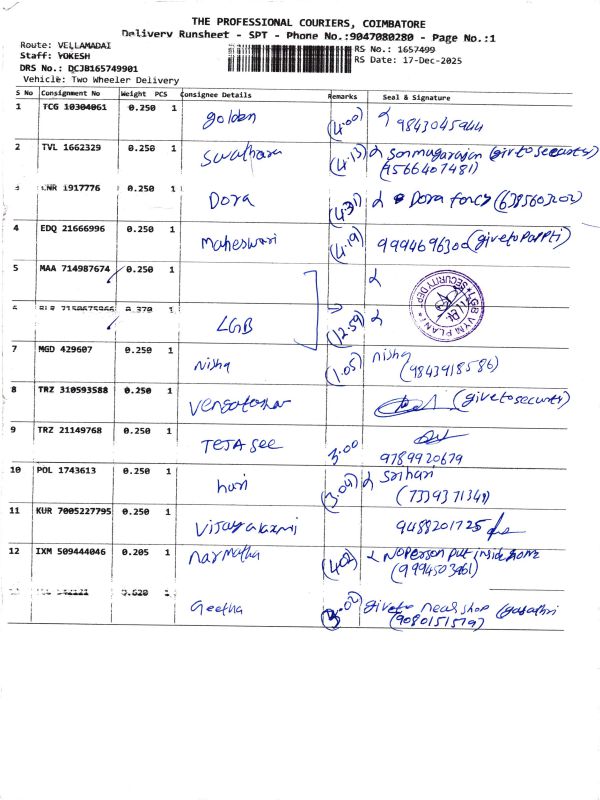 THE PROFESSIONAL COURIERS, COIMBATORE
Delivery Runsheet - SPT - Phone No.:9047080280 - Page No.:1
Route: VELLAMADAI
Staff: YOKESH
DRS No.: DCJB165749901
Vehicle: Two Wheeler Delivery
RS No.: 1657499
RS Date: 17-Dec-2025
S No Consignment No Weight PCS Consignee Details Remarks Seal & Signature
1 TCG 10304061 0.250 1 Golden (4.00) 9843045944
2 TVL 1662329 0.250 1 (4.13) (give to security)
(9566407481)
3 1917776 0.250 1 Dora (4.31) Dora
4 EDQ 21666996 0.250 1 Maheswari (4.19) (give to
5 MAA 714987674 0.250 1
0.370 1 LGB (12.59)
LGB VYM PLANT SECURITY DEP
7 MGD 429607 0.250 1 Nisha (1.05) Nisha
(9843918586)
8 TRZ 310593588 0.250 1 (give to security)
9 TRZ 21149768 0.250 1 TEJA See 3.00
9789920679
10 POL 1743613 0.250 1 hari (3.04) Srihari
(7339371341)
11 KUR 7005227795 0.250 1 Vijayalaxmi 9488201725
12 IXM 509444046 0.205 1 Narmatha (4.02) No Person put inside home
(9994503961)
0.620 1 Geetha give to near shop
(9080151579)